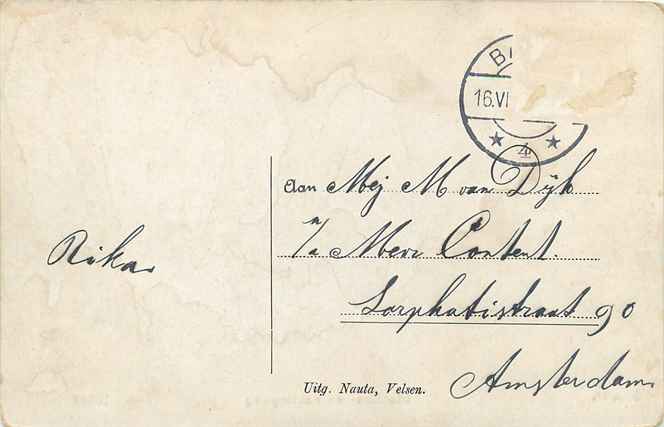 B
16.VI
4
Aan Mej M van Dijk
p/a Mevr Content.
Sarphatistraat 90
Amsterdam
Rika
Uitg. Nauta, Velsen.